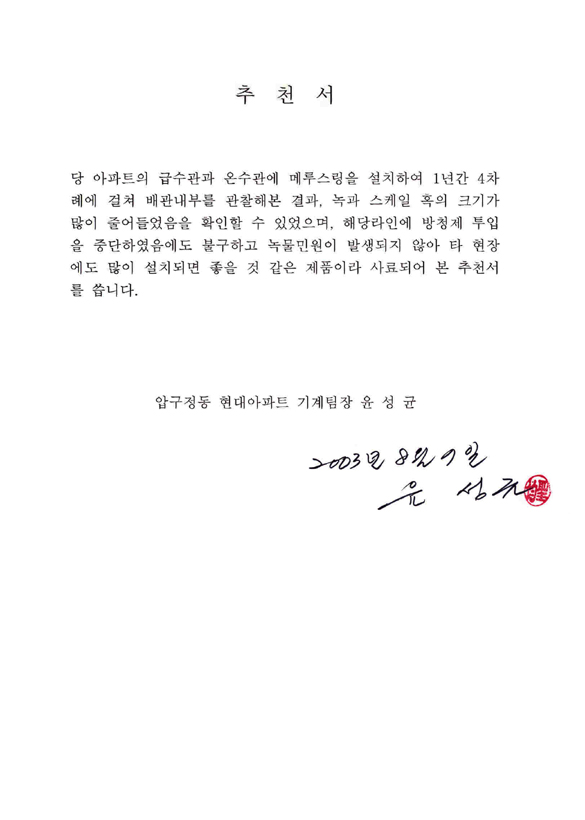 추 천 서
당 아파트의 급수관과 온수관에 메루스링을 설치하여 1년간 4차
례에 걸쳐 배관내부를 관찰해본 결과, 녹과 스케일 혹의 크기가
많이 줄어들었음을 확인할 수 있었으며, 해당라인에 방청제 투입
을 중단하였음에도 불구하고 녹물민원이 발생되지 않아 타 현장
에도 많이 설치되면 좋을 것 같은 제품이라 사료되어 본 추천서
를 씁니다.
압구정동 현대아파트 기계팀장 윤 성 균
2003년 8월 9일
윤 성 균